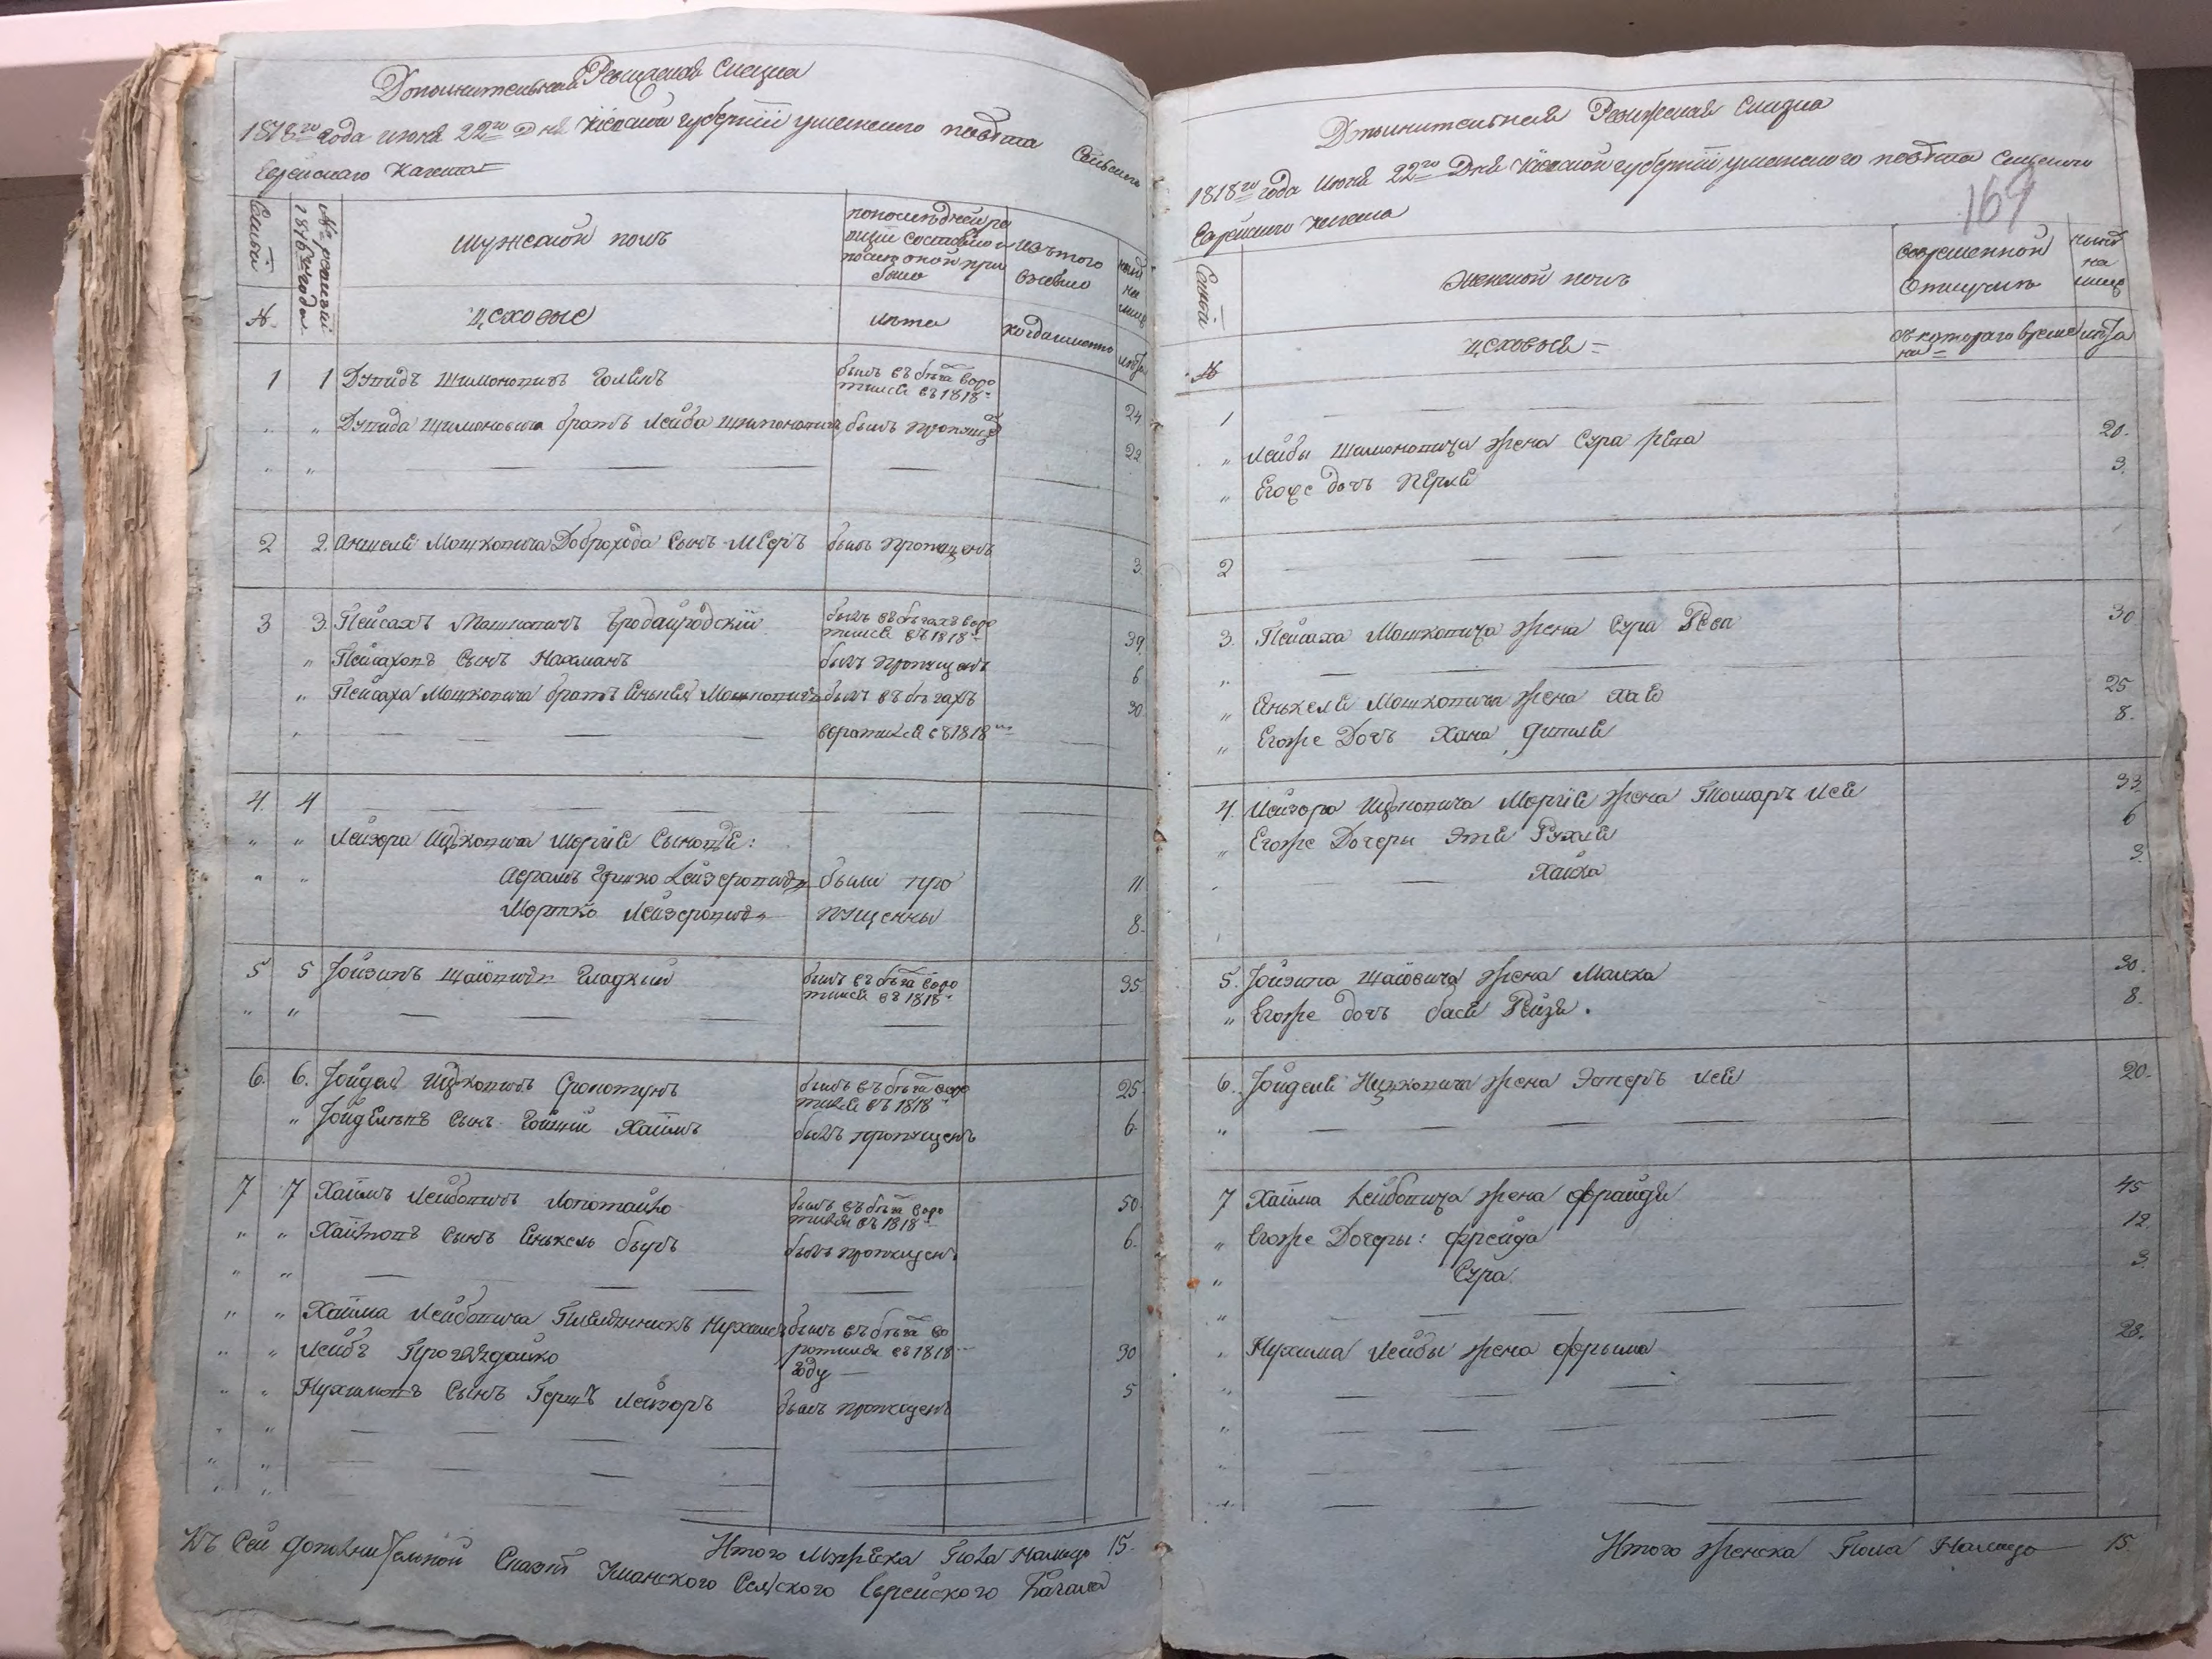 Дополнительная Ревижская Сказка
1818го года июня 22го Дня Киевской губернии уманского повѣта Сельского
Еврейского Кагала
Семьи
№ ревизии 1816го года
мужской полъ
по последней ревизии состояло и после оной прибыло
изъ того выбыло
ныне на лицо
№
цеховые
лѣта
когда именно
лѣта
1 1 Дувидъ Шимоновичъ Голенъ былъ въ бѣга воротился въ 1818 24
" " Дувида Шимоновича братъ Лейба Шимоновичъ былъ пропущ 22
2 2 Аншеля Мошковича Доброхода Сынъ Мееръ былъ пропущенъ 3
3 3 Пейсахъ Мошковичъ былъ въ бѣгахъ воротился въ 1818 39
" Пейсаховъ Сынъ Нахманъ былъ пропущенъ 6
" Пейсаха Мошковича братъ Янькель Мошковичъ былъ въ бѣгахъ 30
воротился въ 1818
4 4
" " Лейзора Ицковича Сыновья:
" " Аврамъ Гершко Лейзеровичъ были про 11
Мортко Лейзеровичъ пущенны 8
5 5 Іойзипъ Шаіовичъ Гладкий былъ въ бѣга воротился въ 1818 35
6 6 Іойдель Ицковичъ былъ въ бѣга воротился въ 1818 25
" Іойдельвъ Сынъ Хаимъ былъ пропущенъ 6
7 7 Хаимъ Лейбовичъ Лопотайко былъ въ бѣга воротился въ 1818 50
" " Хаимовъ Сынъ Янькель былъ пропущенъ 6
" " Хаима Лейбовича Племянникъ Нухимъ былъ въ бѣга во
" " Лейбъ ротился въ 1818 году 30
" " Нухимовъ Сынъ Гершъ Лейзоръ былъ пропущенъ 5
Итого Мужеска Пола Налицо 15
Къ Сей дополнительной Сказкѣ Уманского Сельского Еврейского Кагала
Дополнительная Ревижская Сказка
1818го года Июня 22го Дня Киевской губернии уманского повѣта Сельского
169
Еврейского Кагала
Семьи
Женской полъ
во временной Отлучкѣ
ныне на лице
№
цеховыя
съ котораго времени
лѣта
1
" Лейбы Шимоновича жена Сура 20
" Егоже дочь Перля 3
2
3 Пейсаха Мошковича жена Сура 30
" Янькеля Мошковича жена Хая 25
" Егоже Дочь Хана 8
4 Лейзора Ицковича жена Лея 33
" Егоже Дочери Этя Рухля 6
Хайка 3
5 Іойзипа Шаіовича жена Малка 30
" Егоже дочь бася Рейзя 8
6 Іойделя Ицковича жена Эстеръ Лея 20
7 Хаима Лейбовича жена Фрайдя 45
" Егоже Дочеры: Фрейда 12
" Сура 3
Нухима Лейбы жена Фрыма 28
Итого женска Пола Налицо 15